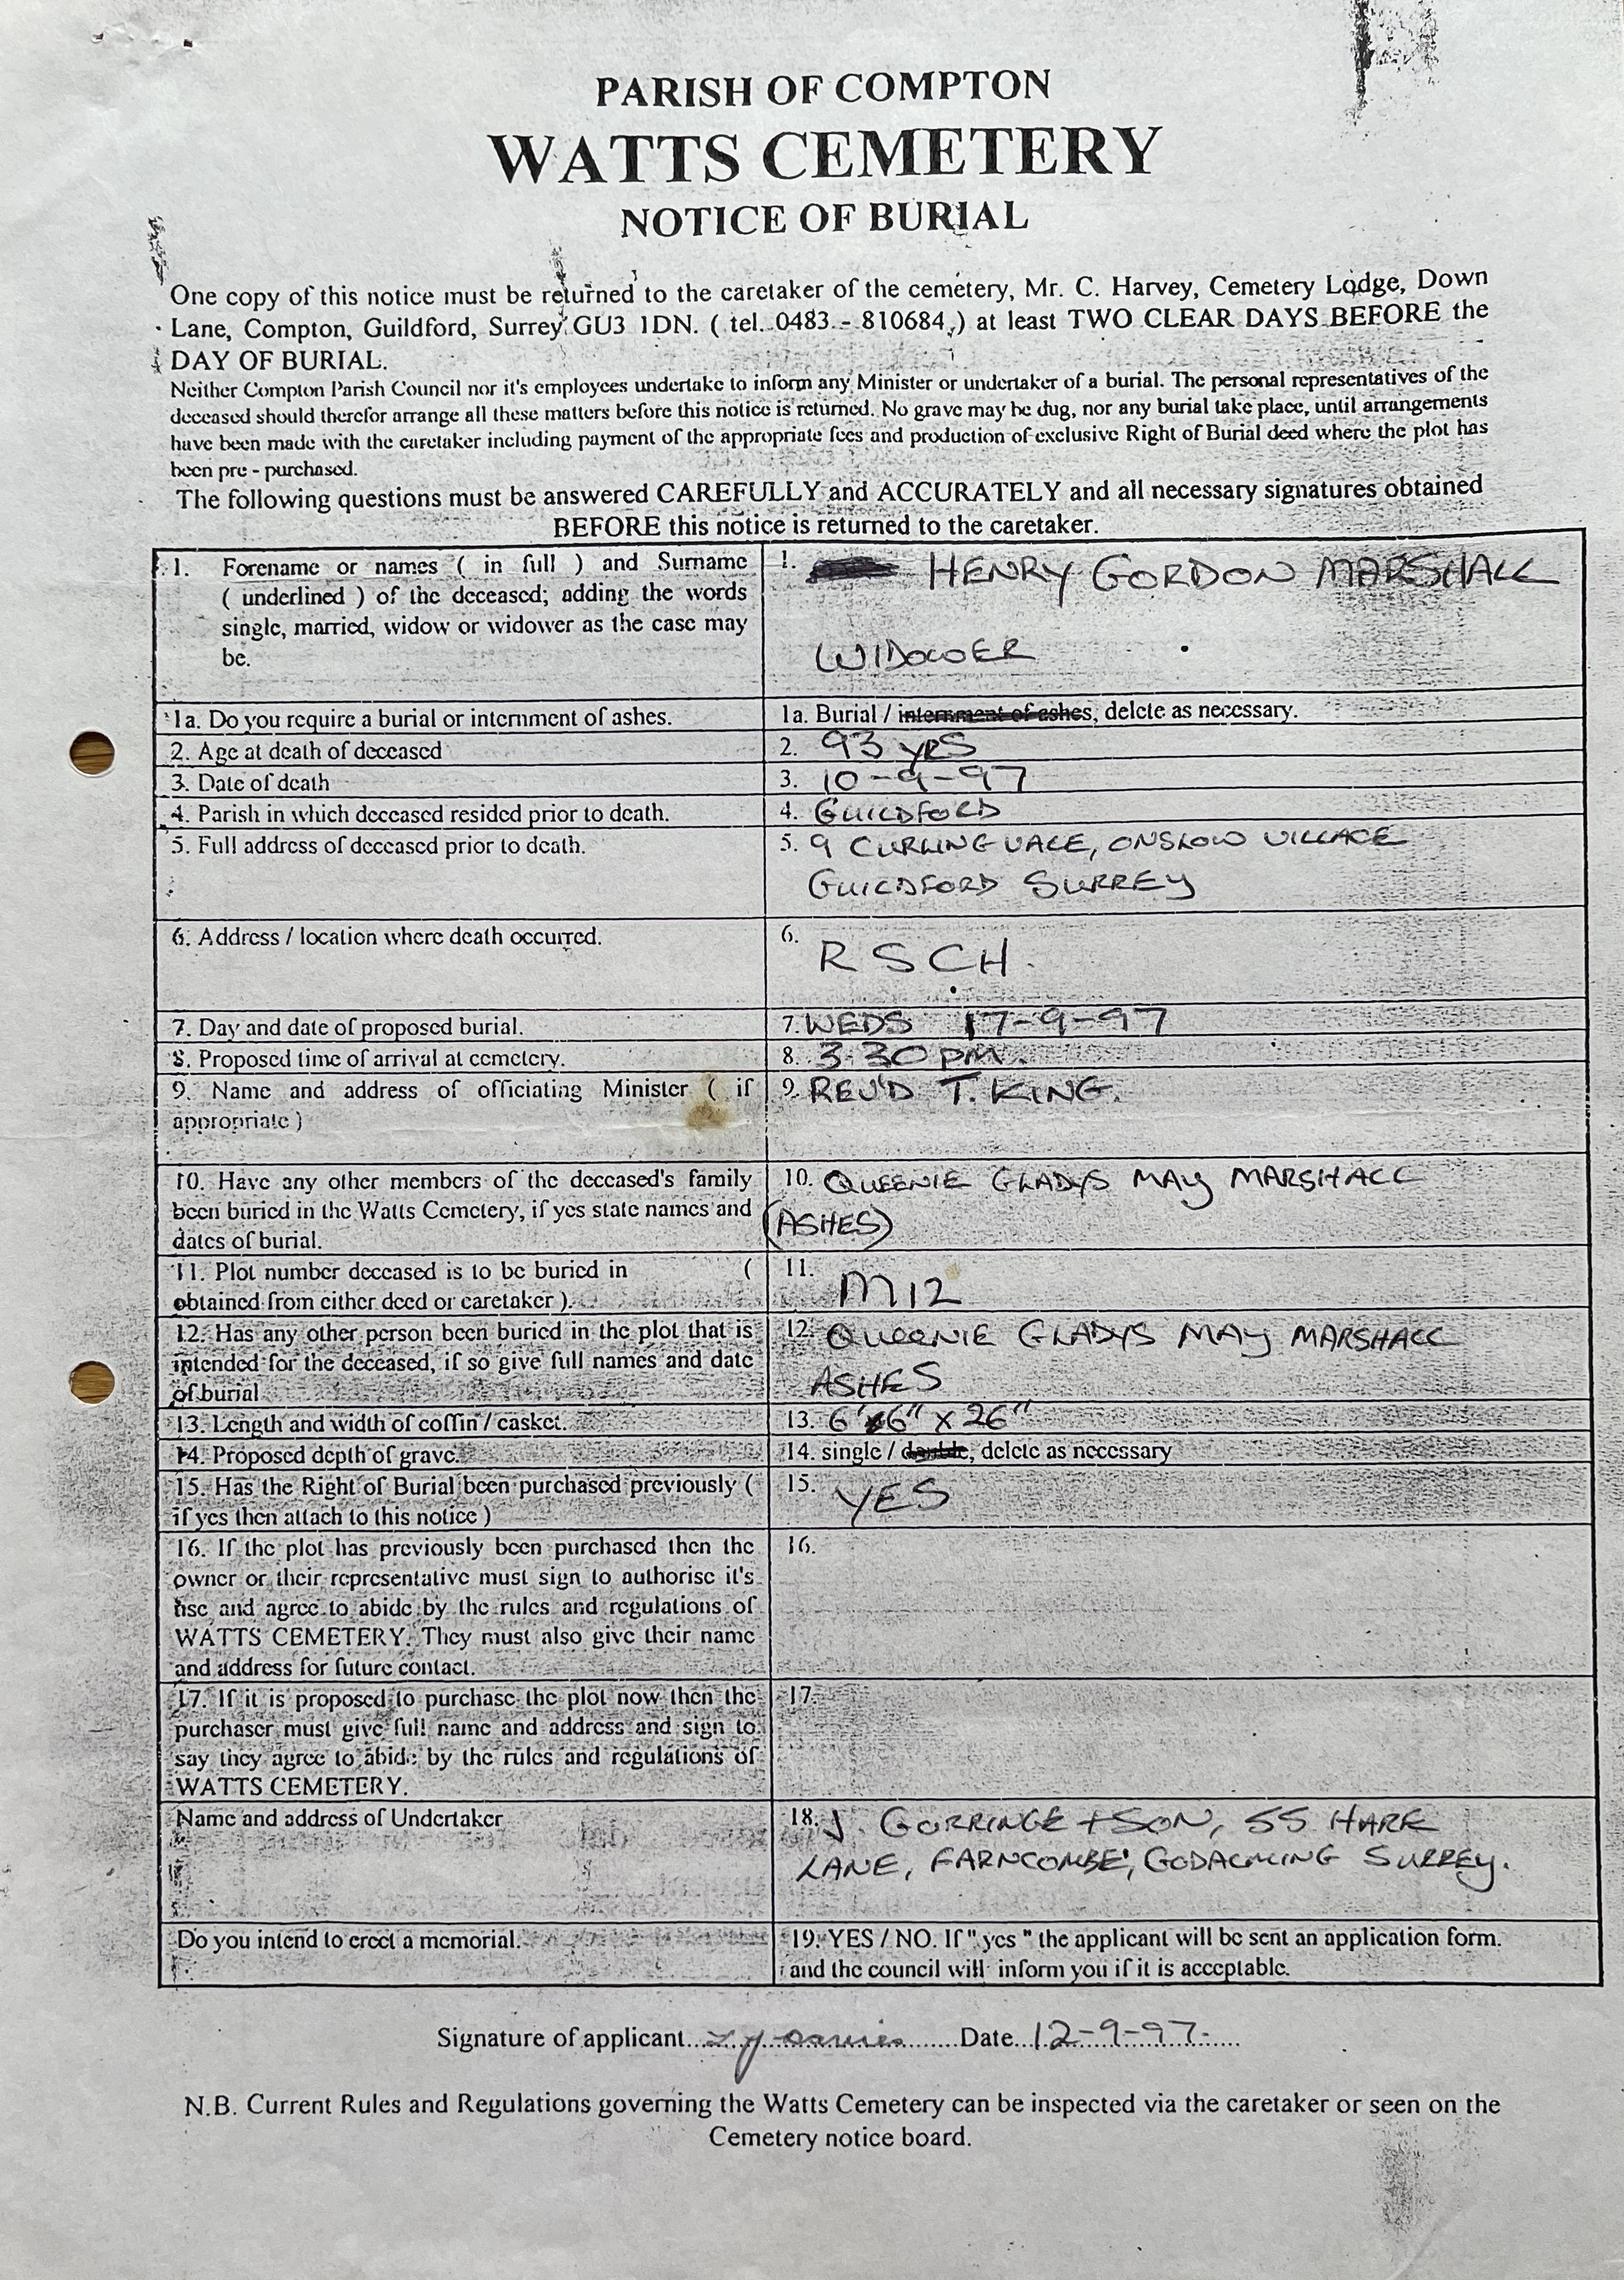 PARISH OF COMPTON
WATTS CEMETERY
NOTICE OF BURIAL
One copy of this notice must be returned to the caretaker of the cemetery, Mr. C. Harvey, Cemetery Lodge, Down
Lane, Compton, Guildford, Surrey GU3 1DN. ( tel. 0483 - 810684 ) at least TWO CLEAR DAYS BEFORE the
DAY OF BURIAL.
Neither Compton Parish Council nor it's employees undertake to inform any Minister or undertaker of a burial. The personal representatives of the
deceased should therefor arrange all these matters before this notice is returned. No grave may be dug, nor any burial take place, until arrangements
have been made with the caretaker including payment of the appropriate fees and production of exclusive Right of Burial deed where the plot has
been pre - purchased.
The following questions must be answered CAREFULLY and ACCURATELY and all necessary signatures obtained
BEFORE this notice is returned to the caretaker.
1. Forename or names ( in full ) and Surname
( underlined ) of the deceased; adding the words
single, married, widow or widower as the case may
be.
1. HENRY GORDON MARSHALL
WIDOWER
1a. Do you require a burial or internment of ashes.
1a. Burial / internment of ashes, delete as necessary.
2. Age at death of deceased
2. 93 yRS
3. Date of death
3. 10-9-97
4. Parish in which deceased resided prior to death.
4. GUILDFORD
5. Full address of deceased prior to death.
5. 9 CURLING VALE, ONSLOW VILLAGE
GUILDFORD SURREY
6. Address / location where death occurred.
6. R S C H.
7. Day and date of proposed burial.
7. WEDS 17-9-97
8. Proposed time of arrival at cemetery.
8. 3.30 pm.
9. Name and address of officiating Minister ( if
appropriate )
9. REV'D T. KING.
10. Have any other members of the deceased's family
been buried in the Watts Cemetery, if yes state names and
dates of burial.
10. QUEENIE GLADYS MAY MARSHALL
(ASHES)
11. Plot number deceased is to be buried in (
obtained from either deed or caretaker ).
11. M12
12. Has any other person been buried in the plot that is
intended for the deceased, if so give full names and date
of burial
12. QUEENIE GLADYS MAY MARSHALL
ASHES
13. Length and width of coffin / casket.
13. 6'6" x 26"
14. Proposed depth of grave.
14. single / double, delete as necessary
15. Has the Right of Burial been purchased previously (
if yes then attach to this notice )
15. YES
16. If the plot has previously been purchased then the
owner or their representative must sign to authorise it's
use and agree to abide by the rules and regulations of
WATTS CEMETERY. They must also give their name
and address for future contact.
16.
17. If it is proposed to purchase the plot now then the
purchaser must give full name and address and sign to
say they agree to abide by the rules and regulations of
WATTS CEMETERY.
17.
Name and address of Undertaker
18. J. GORRINGE + SON, 55 HARE
LANE, FARNCOMBE, GODALMING SURREY.
Do you intend to erect a memorial.
19. YES / NO. If " yes " the applicant will be sent an application form.
and the council will inform you if it is acceptable.
Signature of applicant.......... Date...12-9-97......
N.B. Current Rules and Regulations governing the Watts Cemetery can be inspected via the caretaker or seen on the
Cemetery notice board.